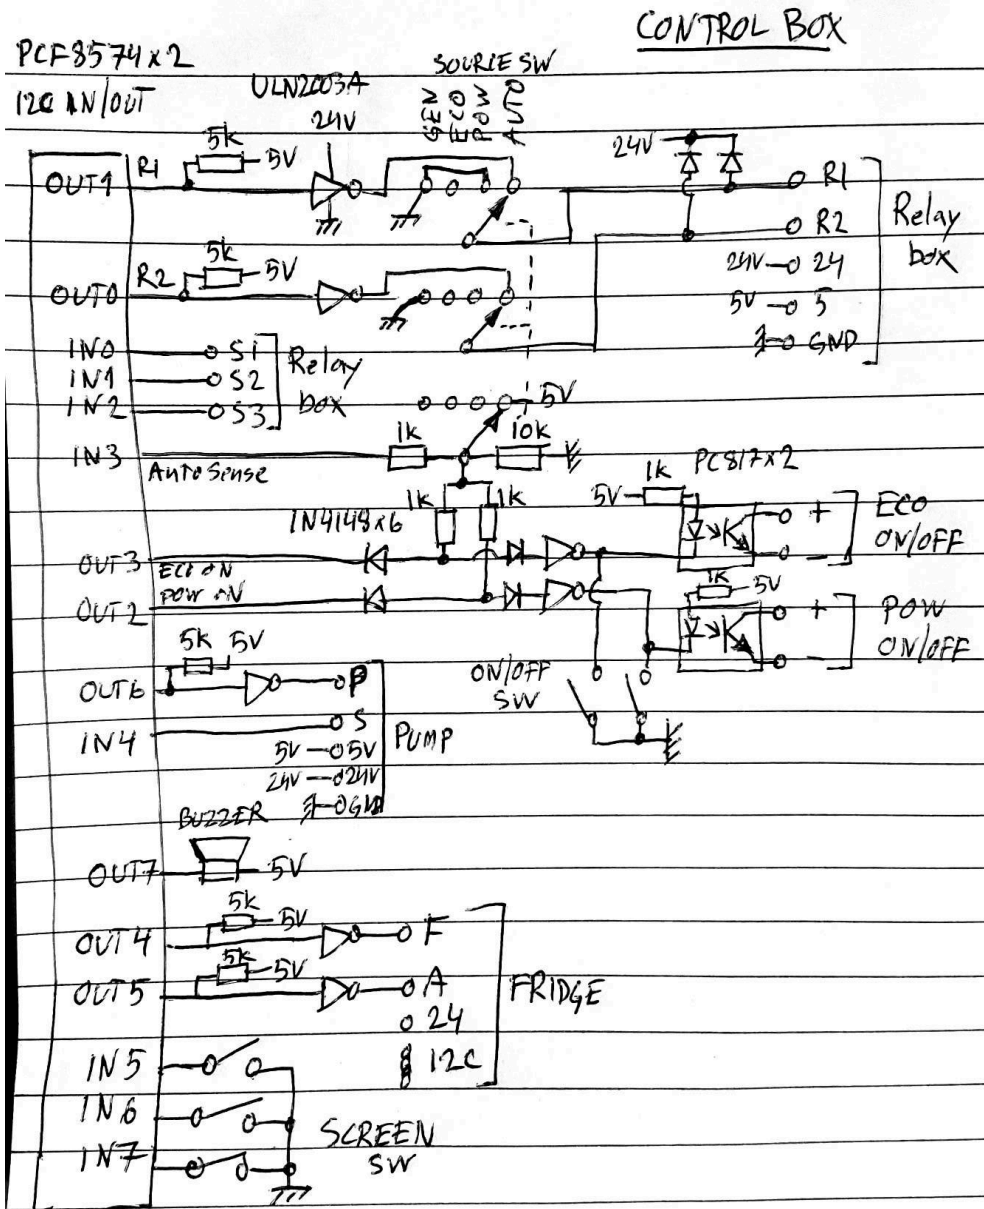 CONTROL BOX
PCF8574x2
I2C IN/OUT
ULN2003A
24V
SOURCE SW
GEN
ECO
POW
AUTO
OUT1
R1
5k
5V
24V
R1
R2
24V 24
5V 5
GND
Relay
box
OUT0
R2
5k
5V
IN0 S1
IN1 S2
IN2 S3
Relay
box
5V
IN3
Auto Sense
1k
10k
1k
1k
1N4148x6
PC817x2
5V
1k
+
-
ECO
ON/OFF
OUT3
ECO ON
POW ON
OUT2
1k
5V
+
-
POW
ON/OFF
ON/OFF
SW
5k
5V
OUT6
P
IN4
S
5V 5V
24V 24V
GND
PUMP
BUZZER
OUT7
5V
OUT4
5k
5V
F
OUT5
5k
5V
A
24
I2C
FRIDGE
IN5
IN6
IN7
SCREEN
SW